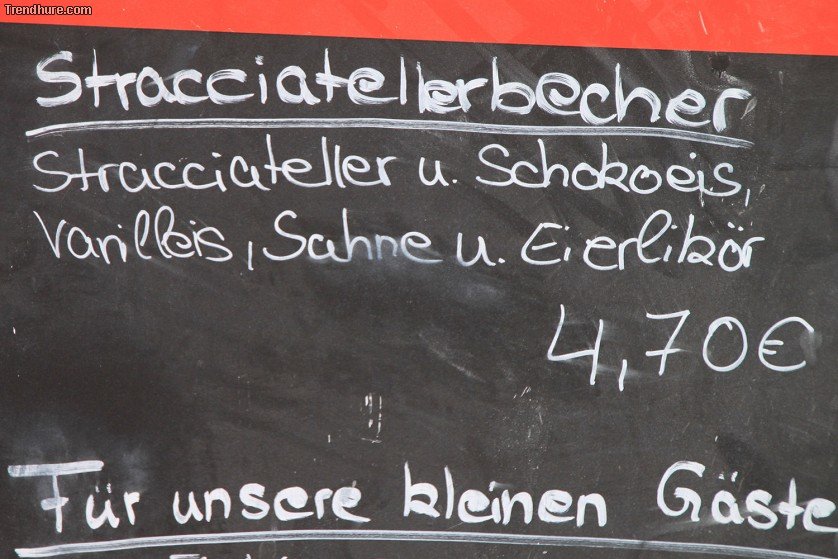 Trendhure.com
Stracciatellerbecher
Stracciateller u. Schokoeis,
Vanilleis, Sahne u. Eierlikör
4,70€
Für unsere kleinen Gäste